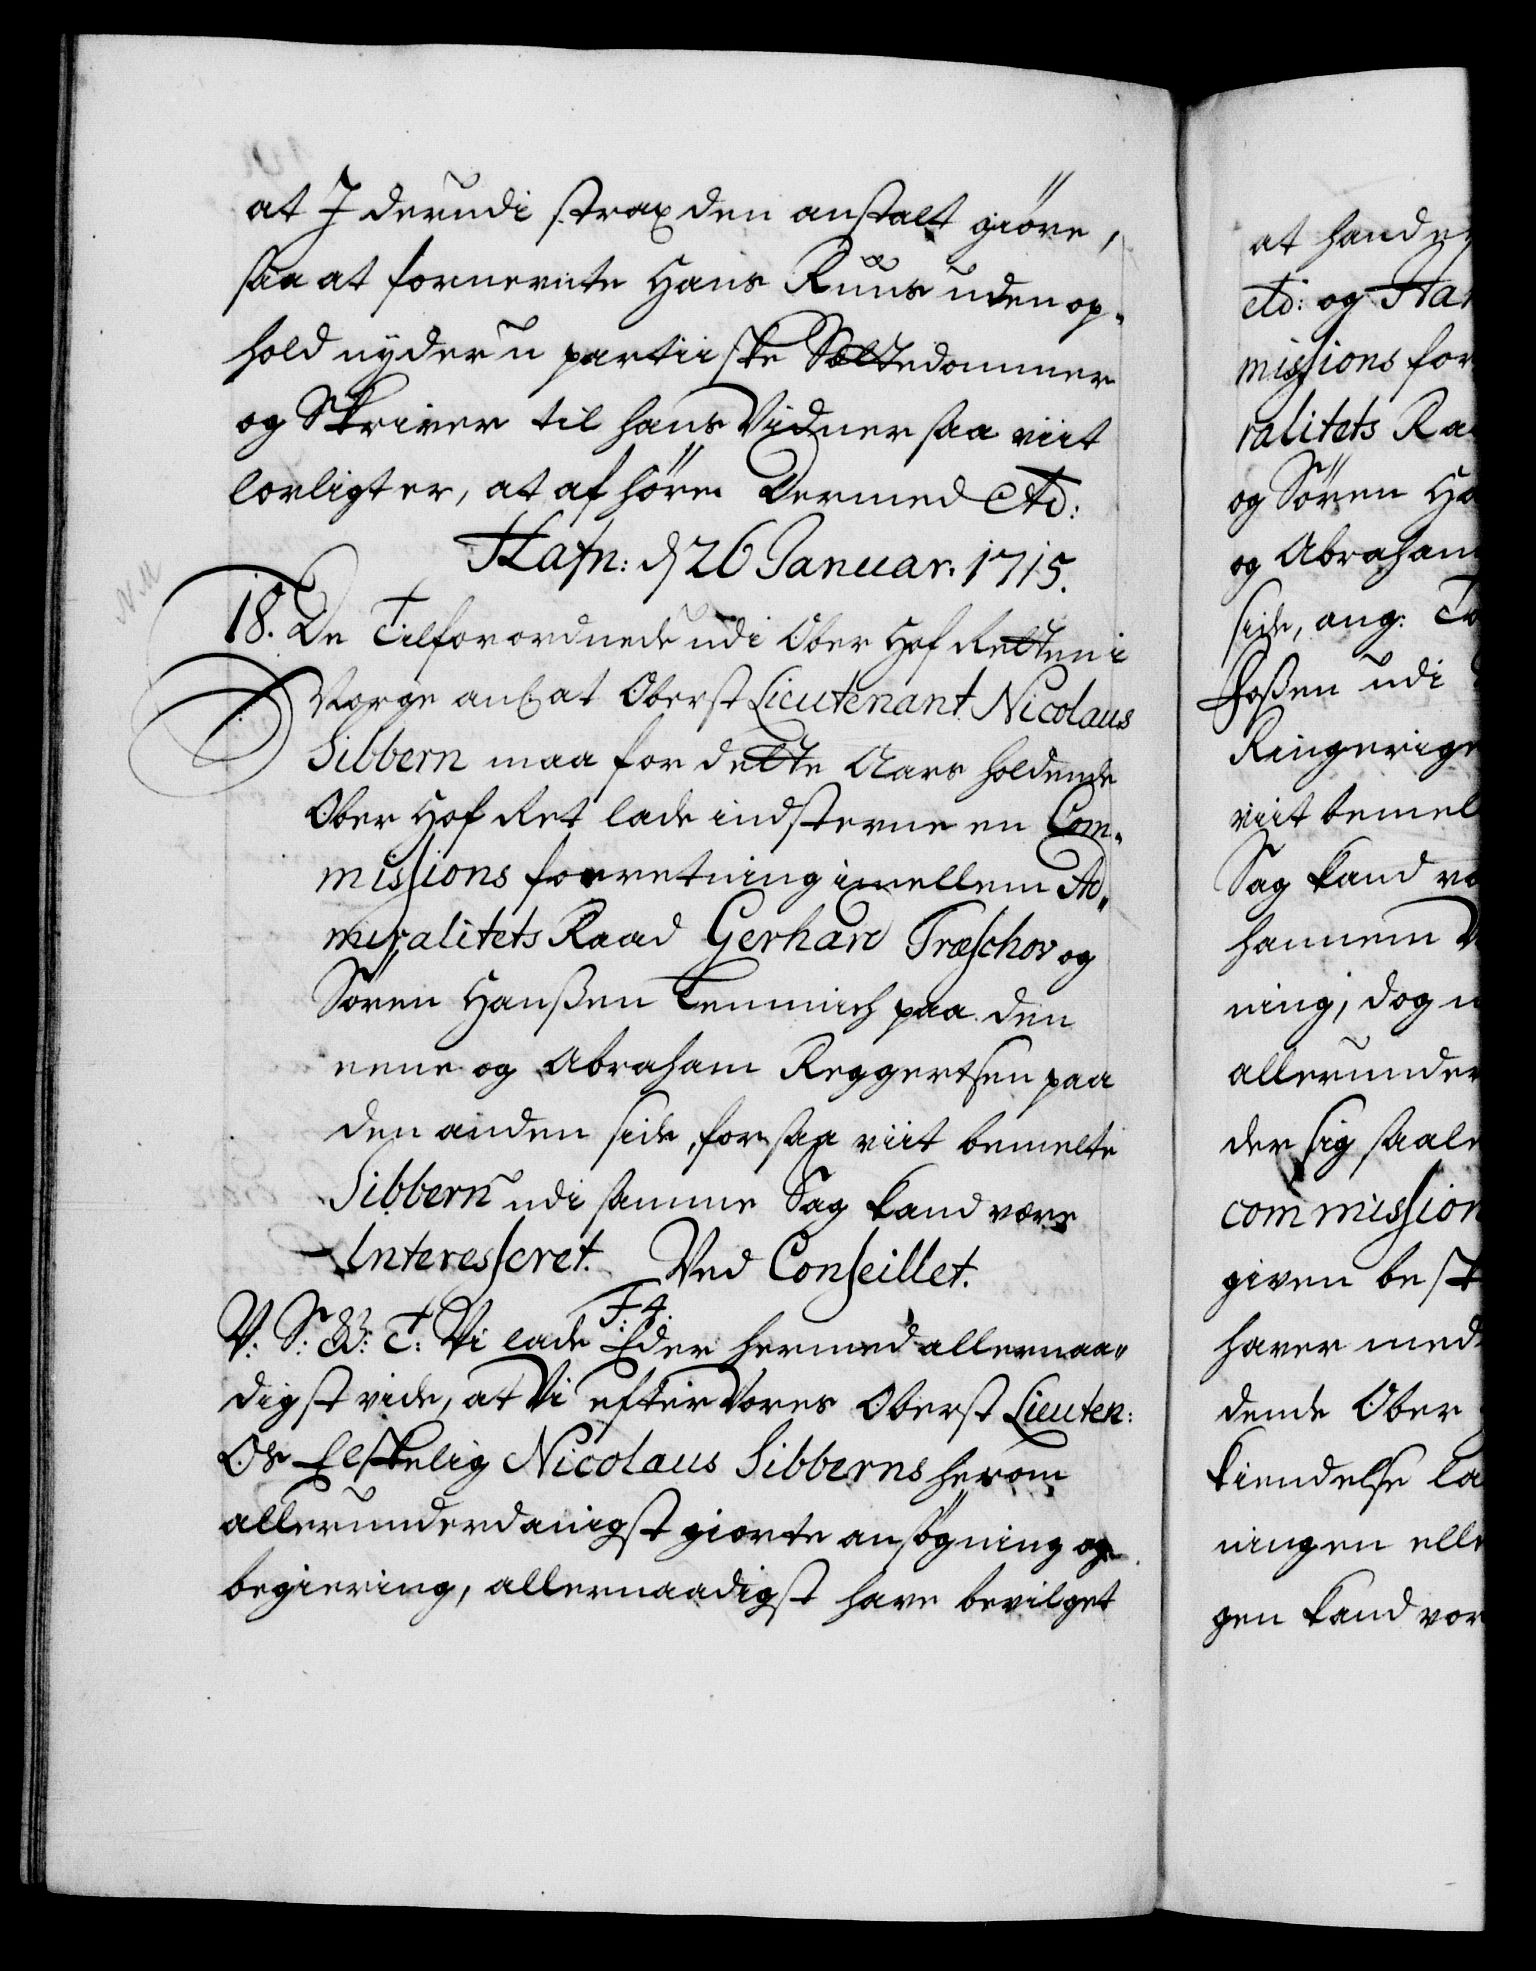 at I derudi strax den anstalt giöre,
saa at fornevnte Hans Ruus uden op-
hold nyder u partiiske Sættedommer
og Skriver til hans Vidner saa viit
lovligt er, at afhöre Dermed etc:
Hafn: d 26 Januar: 1715.
18. De Tilforordnede udi Ober Hof Retten i
Norge anl. at Oberst Lieutenant Nicolaus
Sibbern maa for dette Aars holdende
Ober Hof Ret lade indstevne en Com-
missions forretning imellem Ad-
miralitets Raad Gerhard Træschov og
Sören Hanßen Lemmich paa den
eene og Abraham Reggertsen paa
den anden side, for saa viit bemelte
Sibbern udi samme Sag kand være
Interesseret. Ved Conseillet.
F: 4.
V: S: G: T: Vi lade Eder hermed allernaa-
digst vide, at Vi efter Vores Oberst Lieuten:
Os Elskelig Nicolaus Sibberns herom
allerunderdanigst giorte ansögning og
begiering, allernaadigst have bevilget
at hande
etc: og Ha
missions for
ralitets Ra
og Sören Ha
og Abraham
side, ang:
Foßen udi
Ringerige
viit bemel
Sag kand væ
hannem
ning, dog u
allerunder
der sig saale
commission
given besk
haver med
dende Ober
kiendelse la
ningen elle
gen kand vor